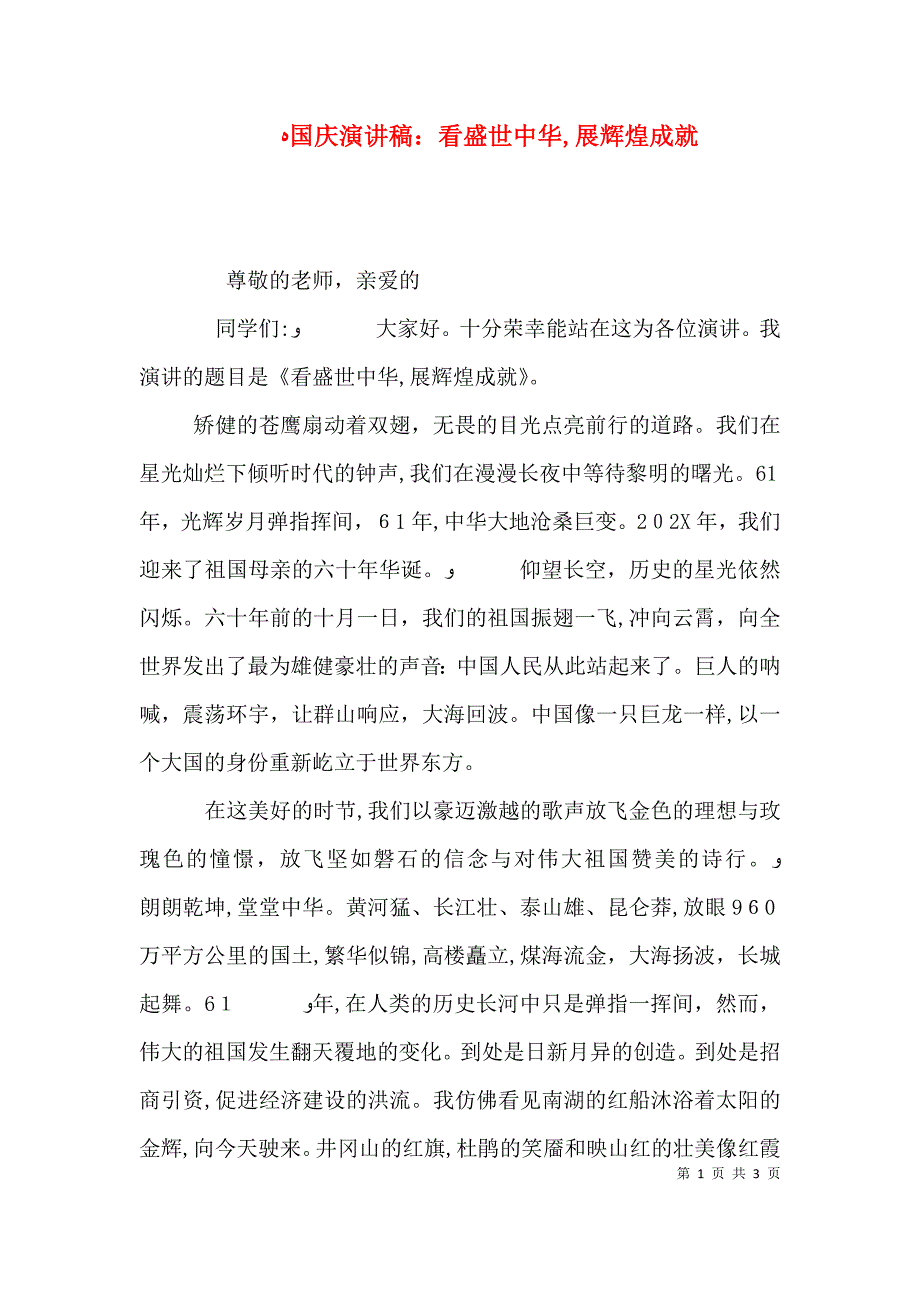 ﻩ国庆演讲稿：看盛世中华,展辉煌成就
尊敬的老师，亲爱的
同学们:ﻭ 大家好。十分荣幸能站在这为各位演讲。我
演讲的题目是《看盛世中华,展辉煌成就》。
矫健的苍鹰扇动着双翅，无畏的目光点亮前行的道路。我们在
星光灿烂下倾听时代的钟声,我们在漫漫长夜中等待黎明的曙光。61
年，光辉岁月弹指挥间，61年,中华大地沧桑巨变。202X年，我们
迎来了祖国母亲的六十年华诞。ﻭ 仰望长空，历史的星光依然
闪烁。六十年前的十月一日，我们的祖国振翅一飞,冲向云霄，向全
世界发出了最为雄健豪壮的声音：中国人民从此站起来了。巨人的呐
喊，震荡环宇，让群山响应，大海回波。中国像一只巨龙一样,以一
个大国的身份重新屹立于世界东方。
在这美好的时节,我们以豪迈激越的歌声放飞金色的理想与玫
瑰色的憧憬，放飞坚如磐石的信念与对伟大祖国赞美的诗行。ﻭ
朗朗乾坤,堂堂中华。黄河猛、长江壮、泰山雄、昆仑莽,放眼960
万平方公里的国土,繁华似锦,高楼矗立,煤海流金，大海扬波，长城
起舞。61 ﻭ年,在人类的历史长河中只是弹指一挥间，然而，
伟大的祖国发生翻天覆地的变化。到处是日新月异的创造。到处是招
商引资,促进经济建设的洪流。我仿佛看见南湖的红船沐浴着太阳的
金辉,向今天驶来。井冈山的红旗,杜鹃的笑靥和映山红的壮美像红霞
第 1 页 共 3 页